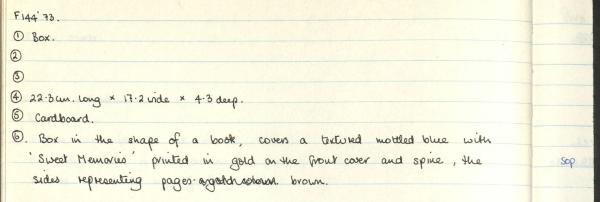 F144'73.
① Box.
②
③
④ 22.3cm. long × 17.2 wide × 4.3 deep.
⑤ Cardboard.
⑥. Box in the shape of a book, covers a textured mottled blue with
'Sweet Memories' printed in gold on the front cover and spine, the
sides representing pages brown.
sop